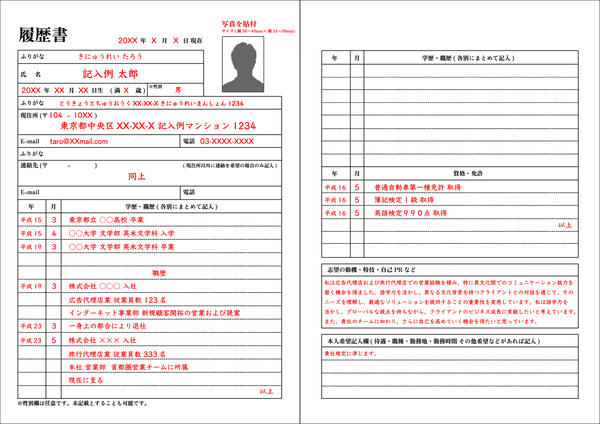 履歴書
20XX 年 X 月 X 日 現在
写真を貼付
サイズ(縦 36～40mm× 横 24～30mm)
ふりがな きにゅうれい たろう
氏 名 記入例 太郎
20XX 年 XX 月 XX 日生 (満 X 歳) ※性別 男
ふりがな とうきょうとちゅうおうく XX-XX-X きにゅうれいまんしょん 1234
現住所 (〒104 - 10XX )
東京都中央区 XX-XX-X 記入例マンション 1234
E-mail taro@XXmail.com 電話 03-XXXX-XXXX
ふりがな
連絡先 (〒 - ) (現住所以外に連絡を希望の場合のみ記入)
同上
E-mail 電話
年 月 学歴・職歴 (各別にまとめて記入)
平成 15 3 東京都立 〇〇高校 卒業
平成 15 4 〇〇大学 文学部 英米文学科 入学
平成 19 3 〇〇大学 文学部 英米文学科 卒業
職歴
平成 19 3 株式会社 〇〇〇 入社
広告代理店業 従業員数 123 名
インターネット事業部 新規顧客開拓の営業および提案
平成 23 3 一身上の都合により退社
平成 23 5 株式会社 ××× 入社
旅行代理店業 従業員数 333 名
本社 営業部 首都圏営業チームに所属
現在に至る
以上
※性別欄は任意です。未記載とすることも可能です。
年 月 学歴・職歴 (各別にまとめて記入)
年 月 資格・免許
平成 16 5 普通自動車第一種免許 取得
平成 16 5 簿記検定 1 級 取得
平成 16 5 英語検定９９０点 取得
以上
志望の動機・特技・自己 PR など
私は広告代理店および旅行代理店での営業経験を積み、特に異文化間でのコミュニケーション能力を
磨く機会を得ました。語学力を活かし、異なる文化背景を持つクライアントとの対話を通じて、その
ニーズを理解し、最適なソリューションを提供することの重要性を実感しています。私は語学力を
活かし、グローバルな視点を持ちながら、クライアントのビジネス成長に貢献したいと考えています。
また、貴社のチームに加わり、さらに自己を高めていく機会を得たいと思っています。
本人希望記入欄 (待遇・職種・勤務地・勤務時間 その他希望などがあれば記入)
貴社規定に準じます。